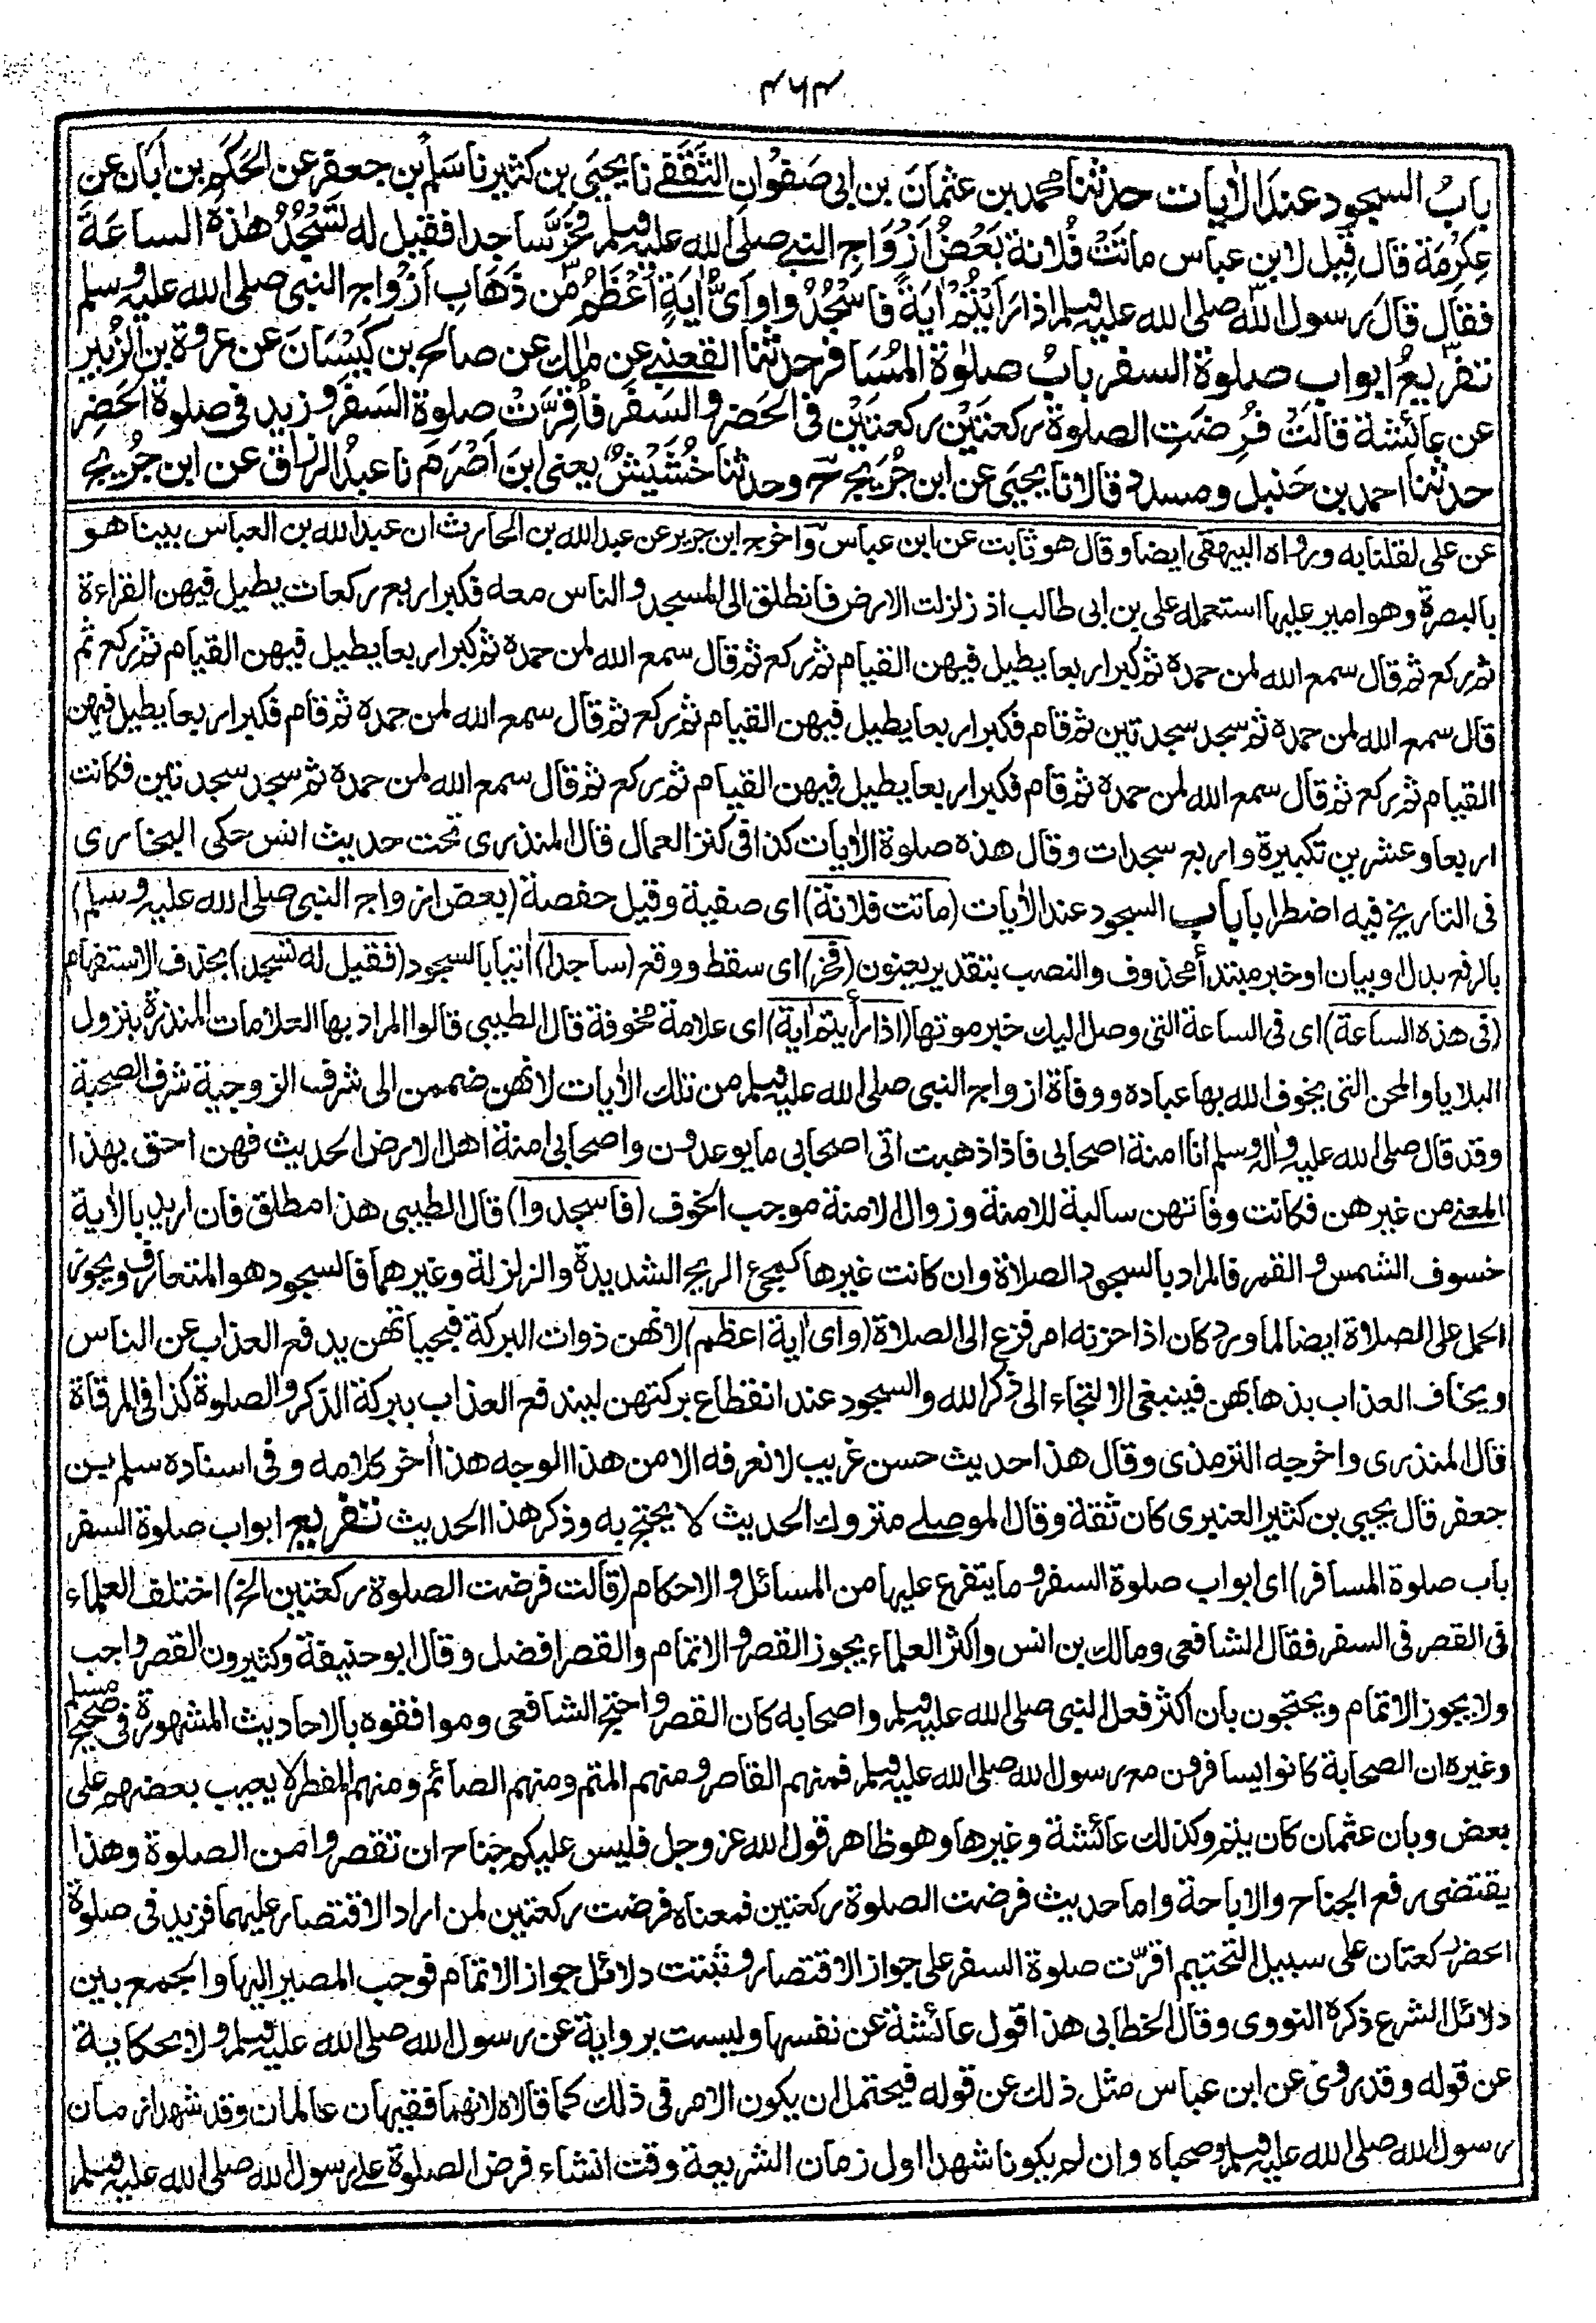 بابُ السجود عند الاٰيات حدثنا محمد بن عثمانَ بن ابى صَفْوان الثَّقَفے نا يحيَى بن كثير نا سَلْمُ بن جعفر عن الحَكَمِ بن اَبَان عن
عِكرِمَة قال قِيل لابن عباس ماتَتْ فُلانة بَعْضُ اَزْوَاجِ النبے صلى الله عليه وسلم فخَرَّ ساجدا فقيل له تَسْجُدُ هٰذه الساعَةَ
فقال قال رسول الله صلى الله عليه وسلم اذا رَاَيْتُمْ اٰيَةً فاسْجُدُوا واَىُّ اٰيَةٍ اَعْظَمُ مِّن ذَهَابِ اَزْوَاجِ النبى صلى الله عليه وسلم
تفريعُ ابواب صلوة السفر بابُ صلوٰة المُسَافر حدثنا القعنبے عن مٰلك عن صالح بن كَيْسَانَ عن عروة بن الزُبير
عن عائشة قالَتْ فُرِضَتِ الصلوة ركعتَيْن ركعتَيْن فى الحَضر والسَفَر فاُقِرَّتْ صلوة السَفَر وزيد فى صلوة الحَضِر
حدثنا احمد بن حَنبل ومسدد قالا نا يحيَى عن ابن جُرَيج ح وحدثنا خُشَيْشٌ يعنى ابنَ اَصْرَمَ نا عبدُ الرزاق عن ابن جُرَيج
عن على لقلنا به ورواه البيهقى ايضا وقال هو ثابت عن ابن عباس واخرج ابن جرير عن عبد الله بن الحارث ان عبد الله بن العباس بينا هو
بالبصرة وهو امير عليها استعمله على بن ابى طالب اذ زلزلت الارض فانطلق الى المسجد والناس معه فكبر اربع ركعات يطيل فيهن القراءة
ثم ركع ثم قال سمع الله لمن حمده ثم كبر اربعا يطيل فيهن القيام ثم ركع ثم قال سمع الله لمن حمده ثم كبر اربعا يطيل فيهن القيام ثم ركع ثم
قال سمع الله لمن حمده ثم سجد سجدتين ثم قام فكبر اربعا يطيل فيهن القيام ثم ركع ثم قال سمع الله لمن حمده ثم قام فكبر اربعا يطيل فيهن
القيام ثم ركع ثم قال سمع الله لمن حمده ثم قام فكبر اربعا يطيل فيهن القيام ثم ركع ثم قال سمع الله لمن حمده ثم سجد سجدتين فكانت
اربعا وعشرين تكبيرة واربع سجدات وقال هذه صلوة الاٰيات كذا فى كنز العمال قال المنذرى تحت حديث انس حكى البخارى
فى التاريخ فيه اضطرابا باب السجود عند الاٰيات (ماتت فلانة) اى صفية وقيل حفصة (بعض ازواج النبى صلى الله عليه وسلم)
بالرفع بدل او بيان او خبر مبتدأ محذوف والنصب بتقدير يعنون (فخر) اى سقط ووقع (ساجدا) اٰتيا بالسجود (فقيل له تسجد) بحذف الاستفهام
(فى هذه الساعة) اى فى الساعة التى وصل اليك خبر موتها (اذا رأيتم اٰية) اى علامة مخوفة قال الطيبى قالوا المراد بها العلامات المنذرة بنزول
البلايا والمحن التى يخوف الله بها عباده ووفاة ازواج النبى صلى الله عليه وسلم من تلك الاٰيات لانهن ضممن الى شرف الزوجية شرف الصحبة
وقد قال صلى الله عليه واٰله وسلم انا امنة اصحابى فاذا ذهبت اتى اصحابى ما يوعدون واصحابى امنة اهل الارض الحديث فهن احق بهذا
المعنے من غيرهن فكانت وفاتهن سالبة للامنة وزوال الامنة موجب الخوف (فاسجدوا) قال الطيبى هذا مطلق فان اريد بالاٰية
خسوف الشمس والقمر فالمراد بالسجود الصلاة وان كانت غيرها كمجىء الريح الشديدة والزلزلة وغيرهما فالسجود هو المتعارف ويجوز
الحمل على الصلاة ايضا لما ورد كان اذا حزبه امر فزع الى الصلاة (واى اٰية اعظم) لانهن ذوات البركة فبحياتهن يدفع العذاب عن الناس
ويخاف العذاب بذهابهن فينبغى الالتجاء الى ذكر الله والسجود عند انقطاع بركتهن ليندفع العذاب ببركة الذكر والصلوة كذا فى المرقاة
قال المنذرى واخرجه الترمذى وقال هذا حديث حسن غريب لا نعرفه الا من هذا الوجه هذا اٰخر كلامه وفى اسناده سلم بن
جعفر قال يحيى بن كثير العنبرى كان ثقة وقال الموصلے متروك الحديث لا يحتج به وذكر هذا الحديث تفريع ابواب صلوة السفر
باب صلوة المسافر) اى ابواب صلوة السفر وما يتفرع عليها من المسائل والاحكام (قالت فرضت الصلوة ركعتين الخ) اختلف العلماء
فى القصر فى السفر فقال الشافعى ومالك بن انس واكثر العلماء يجوز القصر والاتمام والقصر افضل وقال ابو حنيفة وكثيرون القصر واجب
ولا يجوز الاتمام ويحتجون بان اكثر فعل النبى صلى الله عليه وسلم واصحابه كان القصر واحتج الشافعى وموافقوه بالاحاديث المشهورة فى صحيح مسلم
وغيره ان الصحابة كانوا يسافرون مع رسول الله صلى الله عليه وسلم فمنهم القاصر ومنهم المتم ومنهم الصائم ومنهم المفطر لا يعيب بعضهم على
بعض وبان عثمان كان يتم وكذلك عائشة وغيرها وهو ظاهر قول الله عز وجل فليس عليكم جناح ان تقصروا من الصلوة وهذا
يقتضى رفع الجناح والاباحة واما حديث فرضت الصلوة ركعتين فمعناه فرضت ركعتين لمن اراد الاقتصار عليهما فزيد فى صلوة
الحضر ركعتان على سبيل التحتيم اقرّت صلوة السفر على جواز الاقتصار وثبتت دلائل جواز الاتمام فوجب المصير اليها والجمع بين
دلائل الشرع ذكره النووى وقال الخطابى هذا قول عائشة عن نفسها وليست برواية عن رسول الله صلى الله عليه وسلم ولا بحكاية
عن قوله وقد روى عن ابن عباس مثل ذلك عن قوله فيحتمل ان يكون الامر فى ذلك كما قالاه لانهما فقيهان عالمان وقد شهدا زمان
رسول الله صلى الله عليه وسلم وصحباه وان لم يكونا شهدا اول زمان الشريعة وقت انشاء فرض الصلوة علے رسول الله صلى الله عليه وسلم